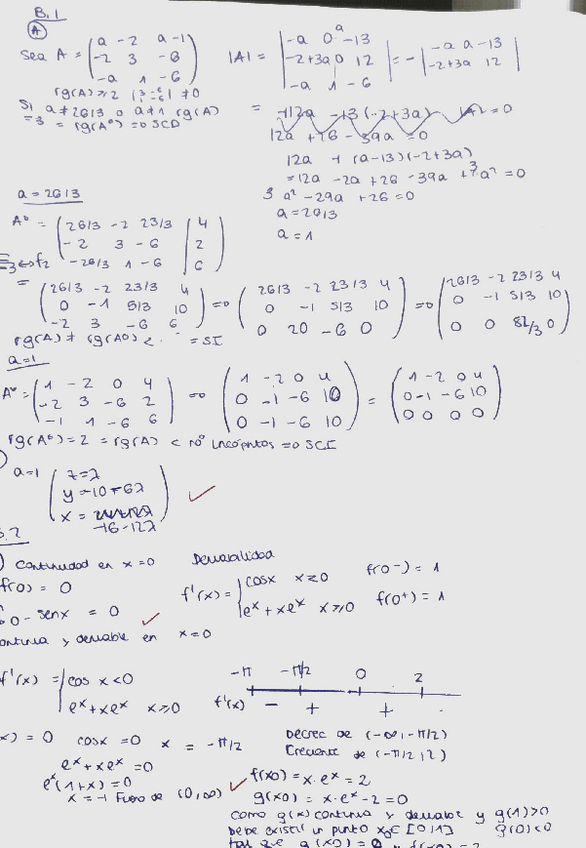 B.1
A
sea A = ( a -2 a-1 / -2 3 -6 / -a 1 -6 )
rg(A) ≥ 2 |3 -6 / 1 -6| ≠ 0
Si a ≠ 26/3 o a ≠ 1 rg(A)
= 3 = rg(A*) => SCD
|A| = | -a 0 a-13 / -2+3a 0 12 / -a 1 -6 | = - | -a a-13 / -2+3a 12 |
= +12a -13(-2+3a) |A| = 0
12a + 26 - 39a = 0
12a + (a-13)(-2+3a)
= 12a - 2a + 26 - 39a + 3a² = 0
3a² - 29a + 26 = 0
a = 26/3
a = 1
a = 26/3
A* = ( 26/3 -2 23/3 | 4 / -2 3 -6 | 2 / -26/3 1 -6 | 6 )
F3 <-> F2
= ( 26/3 -2 23/3 4 / 0 -1 5/3 10 / -2 3 -6 6 ) => ( 26/3 -2 23/3 4 / 0 -1 5/3 10 / 0 20 -6 0 ) => ( 26/3 -2 23/3 4 / 0 -1 5/3 10 / 0 0 82/3 0 )
rg(A) ≠ rg(A*) < = SI
a = 1
A* = ( 1 -2 0 4 / -2 3 -6 2 / -1 1 -6 6 ) => ( 1 -2 0 4 / 0 -1 -6 10 / 0 -1 -6 10 ) = ( 1 -2 0 4 / 0 -1 -6 10 / 0 0 0 0 )
rg(A*) = 2 = rg(A) < nº incógnitas => SCI
a = 1 ( z = λ
y = -10 - 6λ
x =
-16 - 12λ )
B.2
Continuidad en x = 0 Derivabilidad
f(0) = 0
f'(x) = { cosx x ≤ 0 f(0-) = 1
e^x + xe^x x ≥ 0 f(0+) = 1
0- senx = 0
continua y derivable en x = 0
f'(x) = | cos x < 0
e^x + xe^x x ≥ 0
-π -π/2 0 2
f'(x) - + +
x) = 0 cosx = 0 x = -π/2
e^x + xe^x = 0
e^x(1+x) = 0
x = -1 Fuera de (0,∞)
Decrec de (-∞, -π/2)
Creciente de (-π/2, 2)
f(x0) = x·e^x = 2
g(x0) = x·e^x - 2 = 0
como g(x) continua y derivable y g(1) > 0
debe existir un punto x0 ∈ [0,1] g(0) < 0
tal que g(x0) = 0 y f(x0) = 2